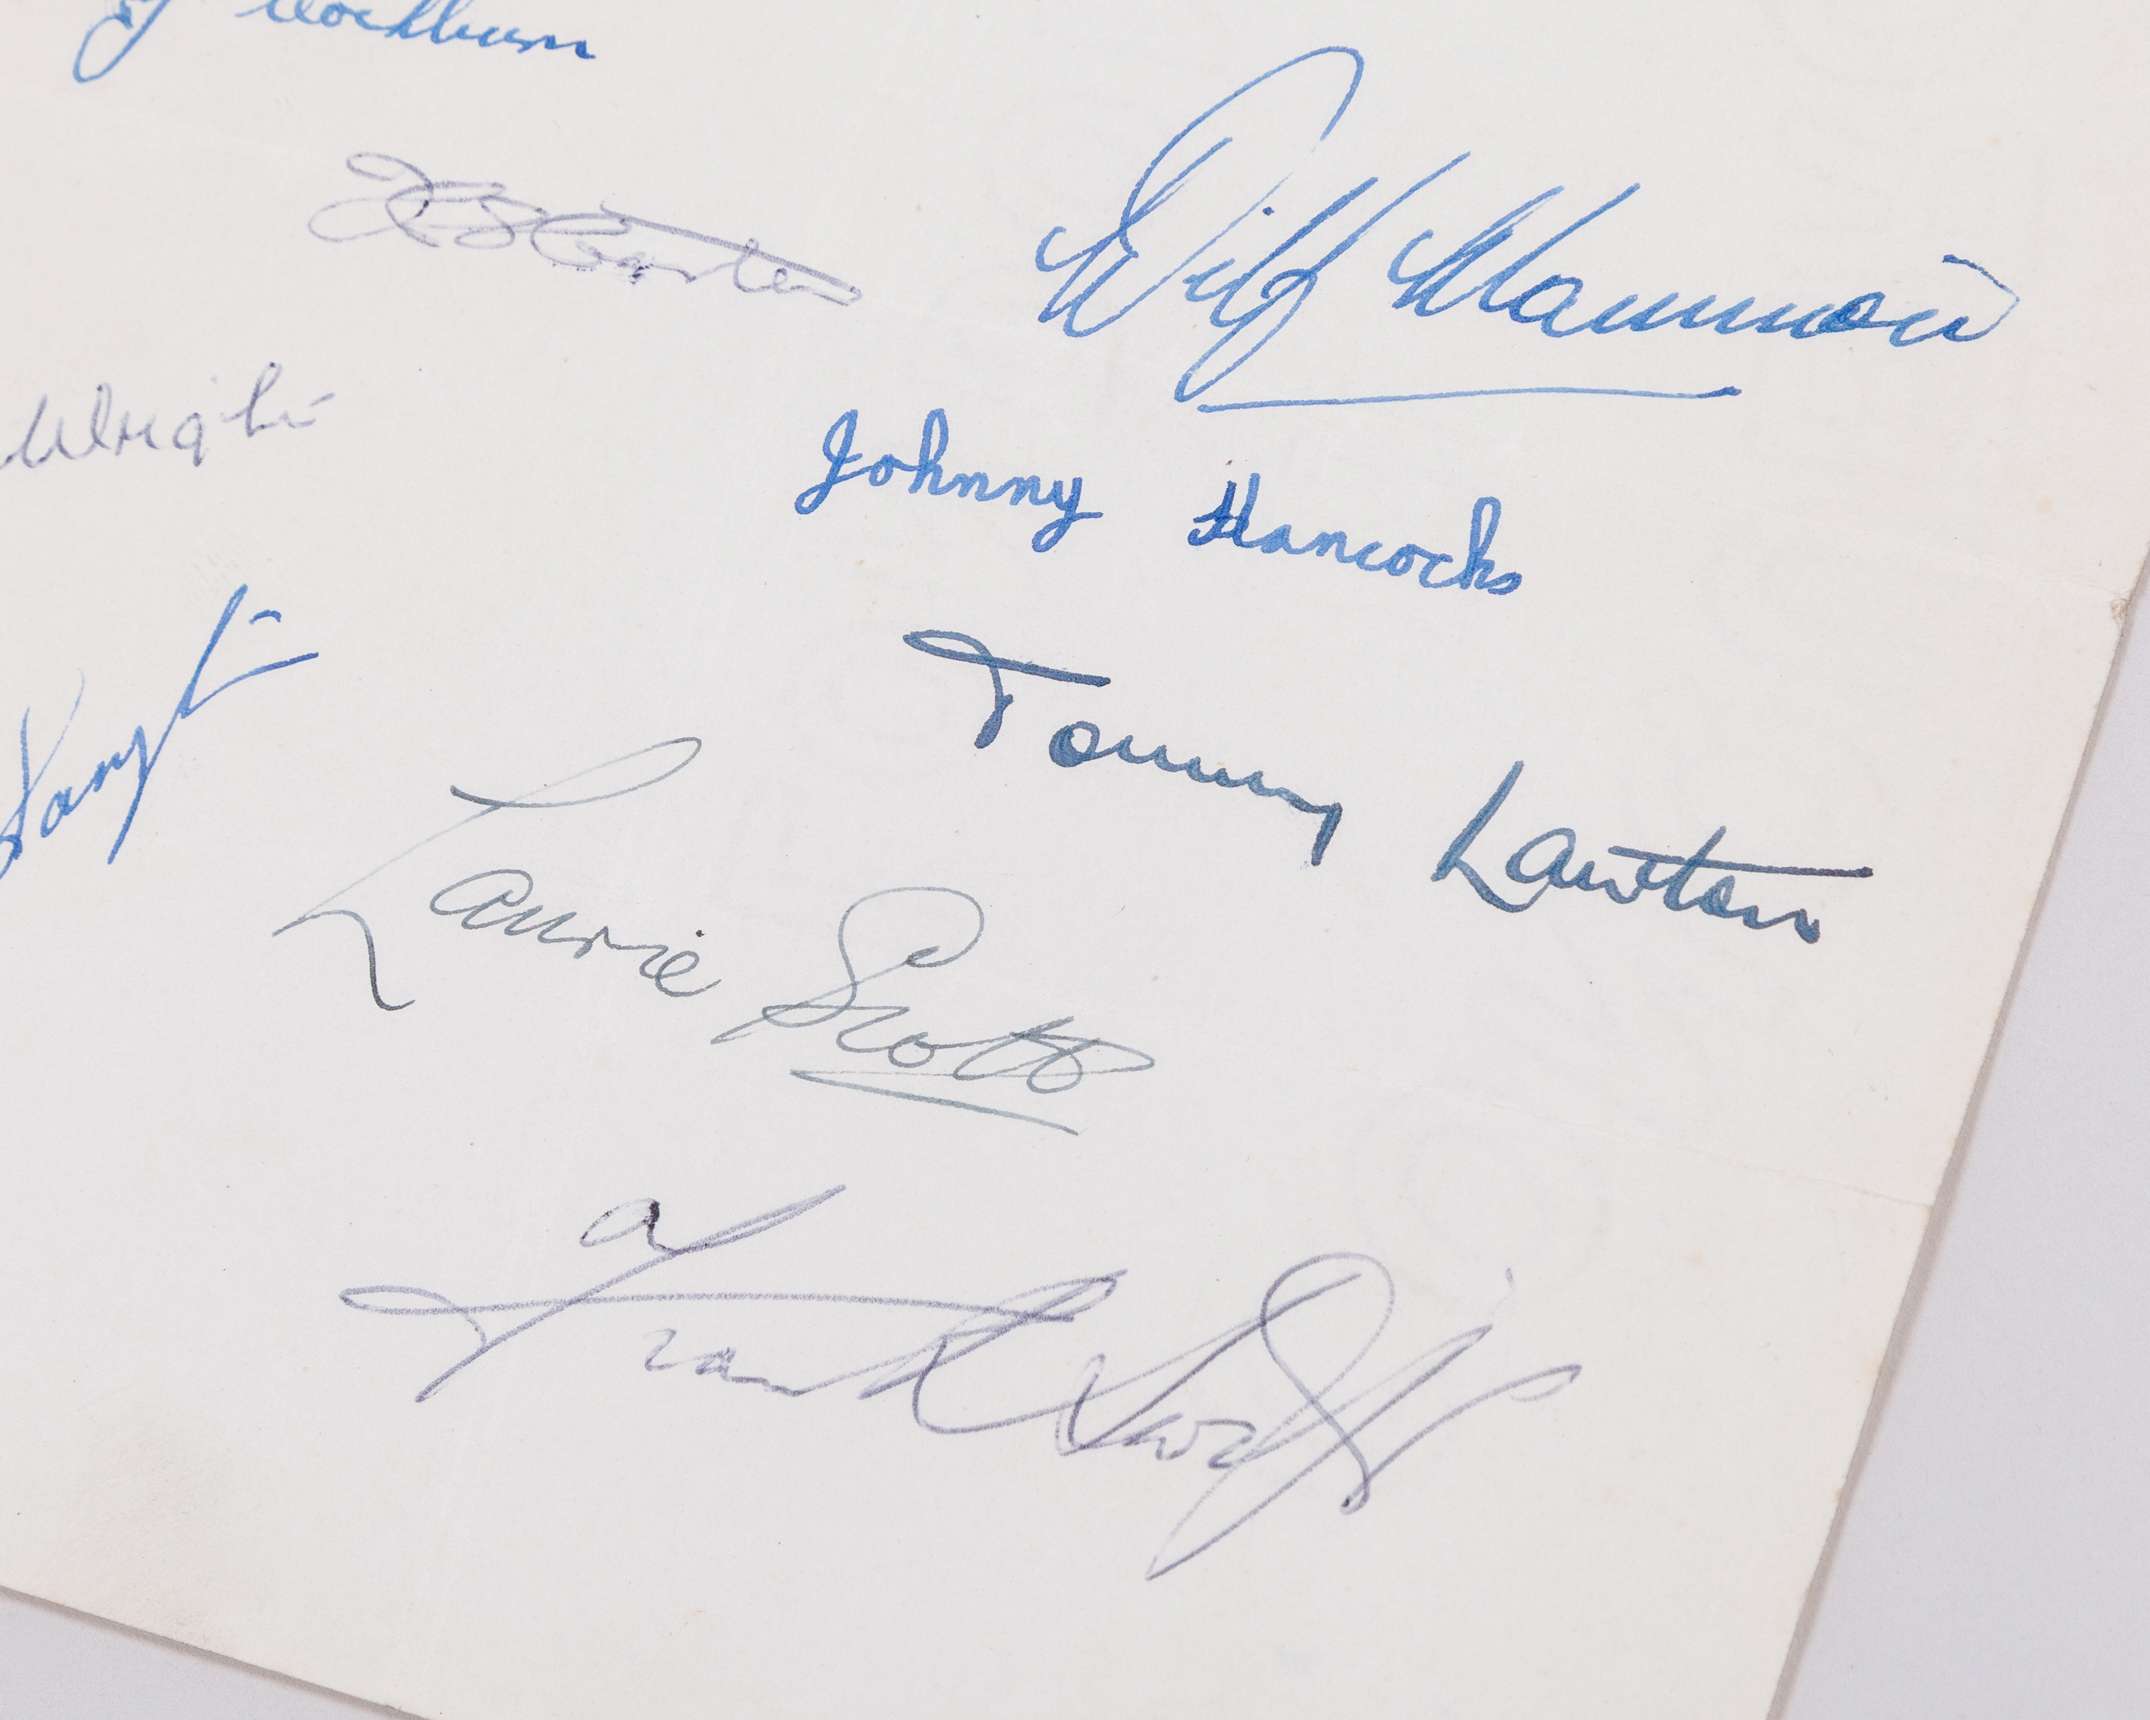 Cockburn
H S Carter
Wilf Mannion
Wright
Johnny Hancocks
Tommy Lawton
Laurie Scott
Frank Swift